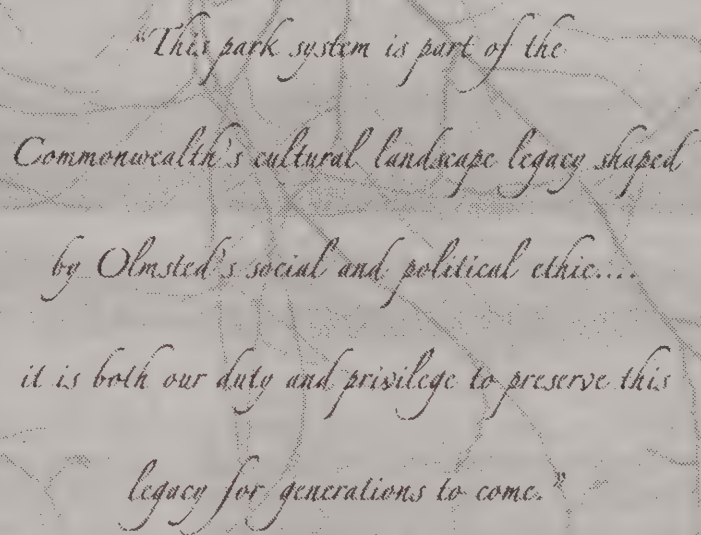 “This park system is part of the
Commonwealth's cultural landscape legacy shaped
by Olmsted's social and political ethic....
it is both our duty and privilege to preserve this
legacy for generations to come.”